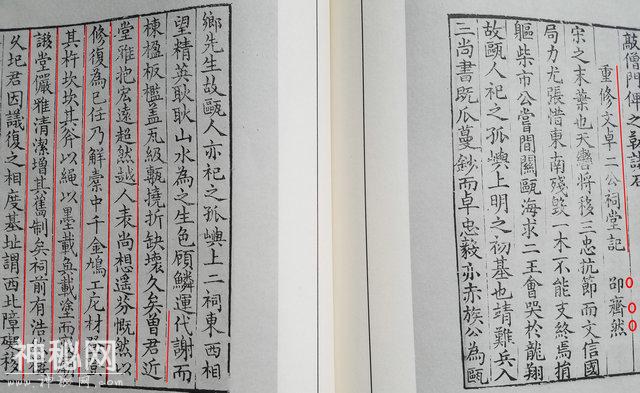 敲僧門俚之新
重修文卓二公祠堂記 邵齊然
宋之末葉也天鑿將移三忠抗節而文信國
局力尤張惜東南殘毀一木不能支終焉捐
軀柴市公嘗間關甌海求二王會哭於龍翔
故甌人祀之孤嶼上明之初基也靖難兵入
三尚書既瓜蔓鈔而卓忠毅亦赤族公為甌
鄉先生故甌人亦祀之孤嶼上二祠東西相
望精英耿耿山水為之生色顧鱗運代謝而
棟楹板檻蓋瓦級甎撓折缺壞久矣曾君近
堂雅抱宏遠超然越人表尚想遥芬慨然以
修復為己任乃解橐中千金鳩工庀材
其杵坎坎其斧以繩以墨載奐載塗而
堂儼雅清潔增其舊制矣祠前有浩
久圮君因議復之相度基址謂西北障礙移
神秘网
www.